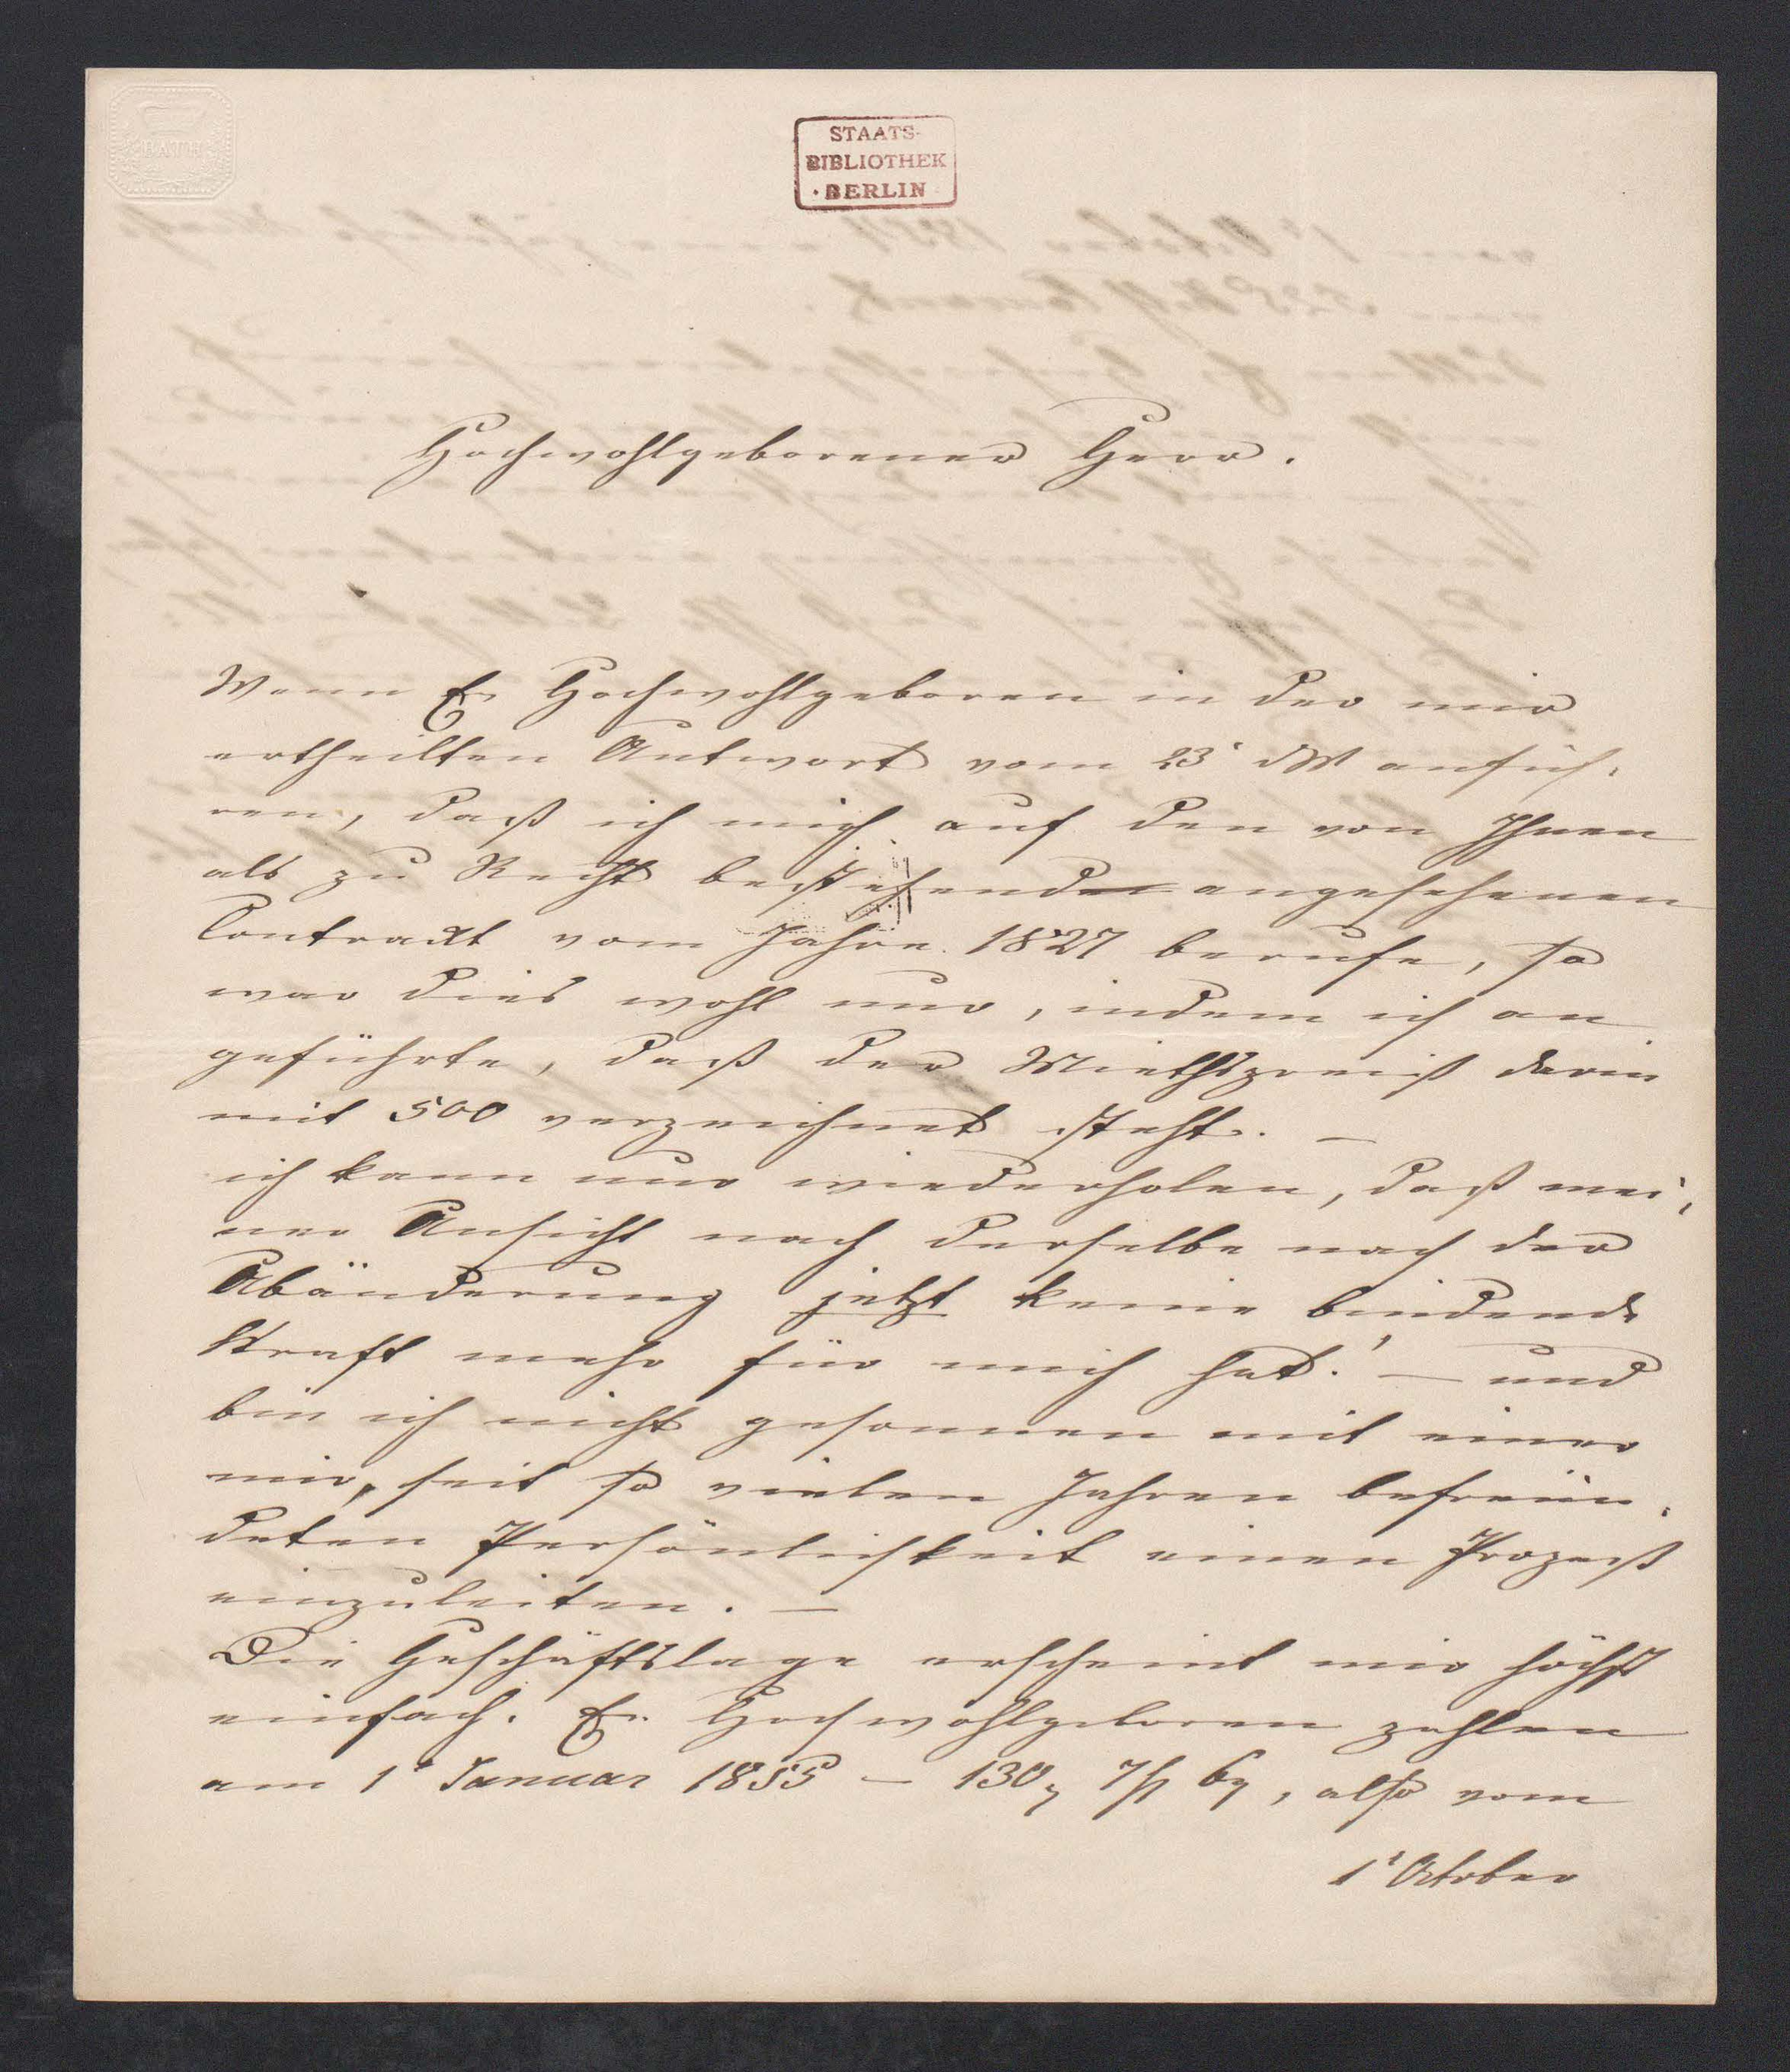 BATH
STAATS-
BIBLIOTHEK
· BERLIN ·
Hochwohlgeborener Herr.
Wenn Ew Hochwohlgeboren in der mir
ertheilten Antwort vom 23' dM anfüh-
ren, daß ich mich auf den von Ihnen
als zu Recht bestehend angesehenen
Contrackt vom Jahre 1827 berufe, so
war dies wohl nur, indem ich an
geführte, daß der Miethspreiß darin
mit 500 verzeichnet steht. —
ich kann nur wiederholen, daß mei-
ner Ansicht nach derselbe nach der
Abänderung jetzt keine bindende
Kraft mehr für mich hat! — und
bin ich nicht gesonnen mit einer
mir, seit so vielen Jahren befreün-
deten Persönlichkeit einen Prozeß
einzuleiten. —
Die Geschäftslage erscheint mir höchst
einfach. Ew Hochwohlgeboren zahlen
am 1' Januar 1855 — 130 7 6, also vom
1' October